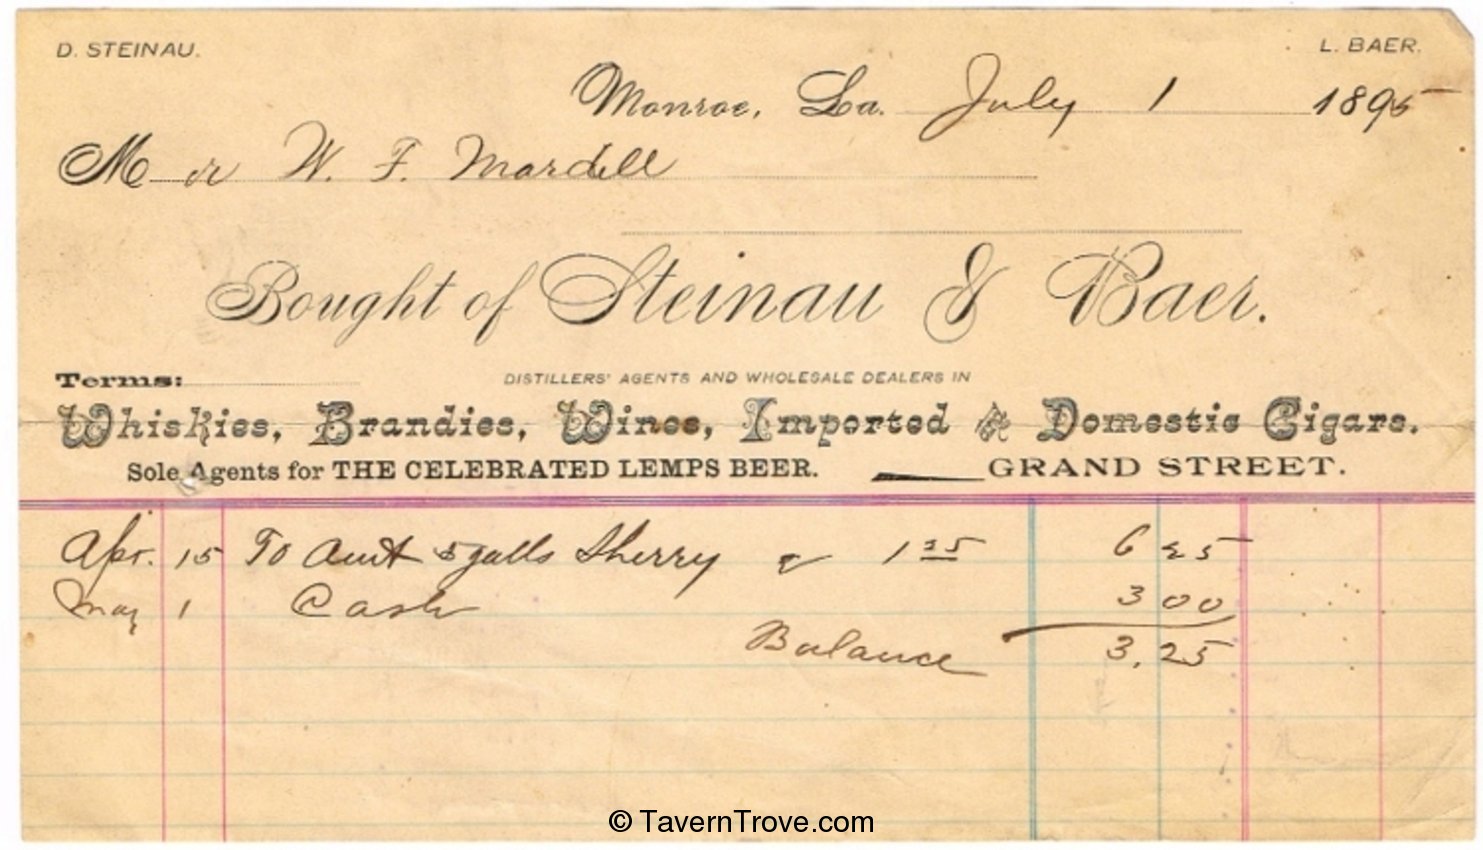 D. STEINAU. L. BAER.
Monroe, La. July 1 1895
Mr W. F. Mardell
Bought of Steinau & Baer.
Terms: DISTILLERS' AGENTS AND WHOLESALE DEALERS IN
Whiskies, Brandies, Wines, Imported & Domestic Cigars.
Sole Agents for THE CELEBRATED LEMPS BEER. GRAND STREET.
Apr. 15 To Amt 5 galls Sherry @ 1 25 6 25
May 1 Cash 3 00
Balance 3.25
© TavernTrove.com